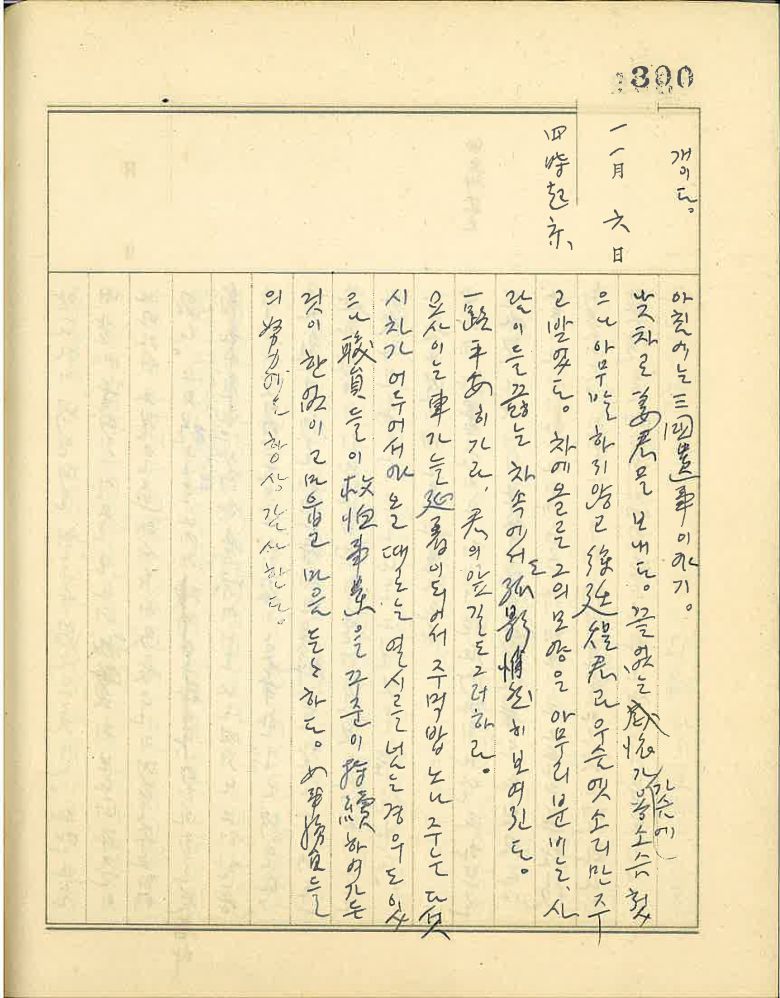 300
개이다.
一一月 六日
四時起床、
아침에는 三國遺事 이야기。
낮차로 姜君을 보내다. 끝없는 感懷가 가슴에 용소슴 첬
으나 아무말 하지 않고 徐廷 君과 우슨엣소리만 주
고 받았다。 차에 올른 그의 모양은 아무리 분비는、사
람이 들끓는 차속에서도 孤影悄然히 보여진다。
一路平安히 가라、君의 앞길도 그러하라。
요사이는 車가 늘 延着이 되어서 주먹밥 노나주는 다섯
시차가 어두어서야 올 때로는 열시를 넘는 경우도 있
으나 職員들이 救恤事業을 꾸준이 持續하여가는
것이 한없이 고마웁고 마음 든든하다。 女事務員들
의 努力에는 항상 감사한다。